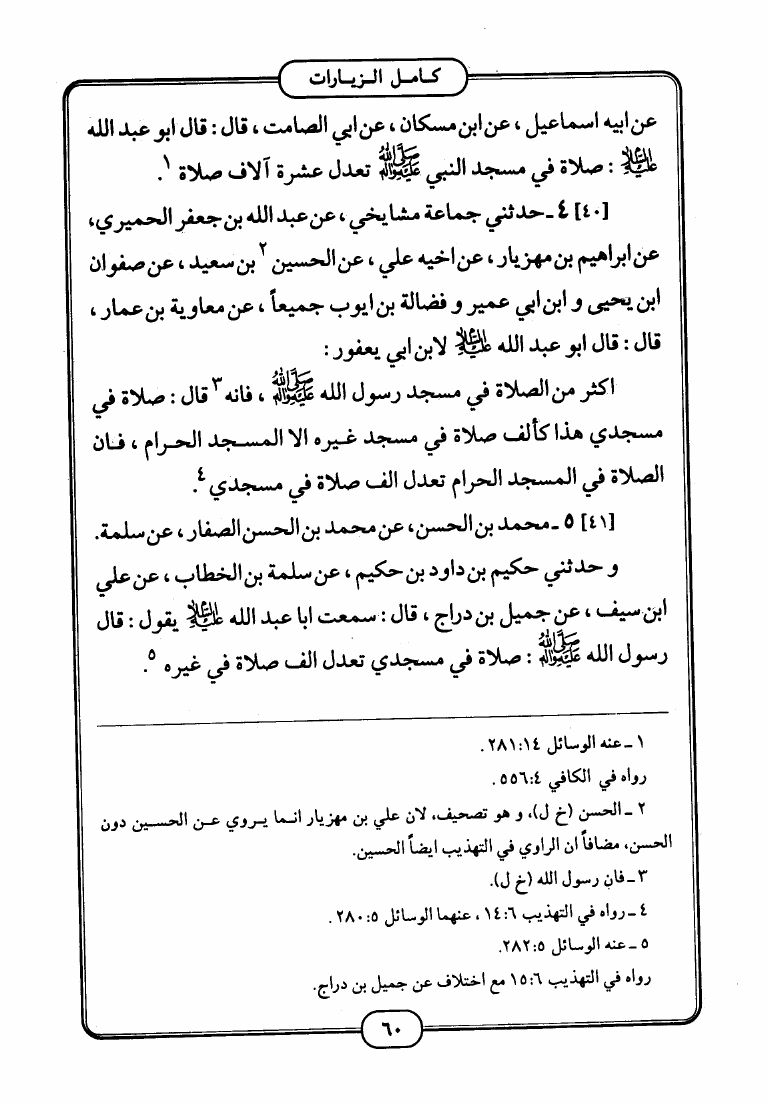 كامل الزيارات
عن ابيه اسماعيل ، عن ابن مسكان ، عن ابي الصامت ، قال : قال ابو عبد الله
عليه السلام : صلاة في مسجد النبي صلى الله عليه وآله تعدل عشرة آلاف صلاة ١.
[٤٠] ٤ ـ حدثني جماعة مشايخي ، عن عبد الله بن جعفر الحميري،
عن ابراهيم بن مهزيار ، عن اخيه علي ، عن الحسين ٢ بن سعيد ، عن صفوان
ابن يحيى و ابن ابي عمير و فضالة بن ايوب جميعاً ، عن معاوية بن عمار ،
قال : قال ابو عبد الله عليه السلام لابن ابي يعفور :
اكثر من الصلاة في مسجد رسول الله صلى الله عليه وآله ، فانه ٣ قال : صلاة في
مسجدي هذا كألف صلاة في مسجد غيره الا المسجد الحرام ، فان
الصلاة في المسجد الحرام تعدل الف صلاة في مسجدي ٤.
[٤١] ٥ ـ محمد بن الحسن، عن محمد بن الحسن الصفار ، عن سلمة.
و حدثني حكيم بن داود بن حكيم ، عن سلمة بن الخطاب ، عن علي
ابن سيف ، عن جميل بن دراج ، قال : سمعت ابا عبد الله عليه السلام يقول : قال
رسول الله صلى الله عليه وآله : صلاة في مسجدي تعدل الف صلاة في غيره ٥.
١ ـ عنه الوسائل ٢٨١:١٤ .
رواه في الكافي ٥٥٦:٤ .
٢ ـ الحسن (خ ل)، و هو تصحيف، لان علي بن مهزيار انما يروي عن الحسين دون
الحسن، مضافاً ان الراوي في التهذيب ايضاً الحسين.
٣ ـ فان رسول الله (خ ل).
٤ ـ رواه في التهذيب ١٤:٦ ، عنهما الوسائل ٢٨٠:٥ .
٥ ـ عنه الوسائل ٢٨٢:٥.
رواه في التهذيب ١٥:٦ مع اختلاف عن جميل بن دراج.
٦٠